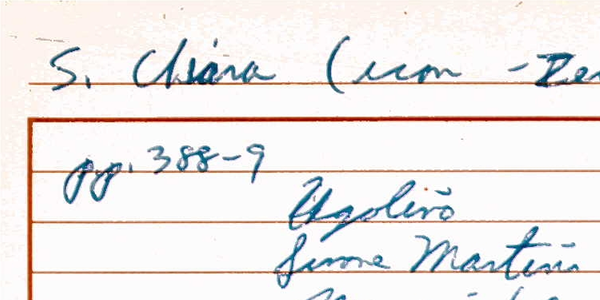 S. Chiara (icon - Ze
pp. 388-9
Ugolino
Simone Martini